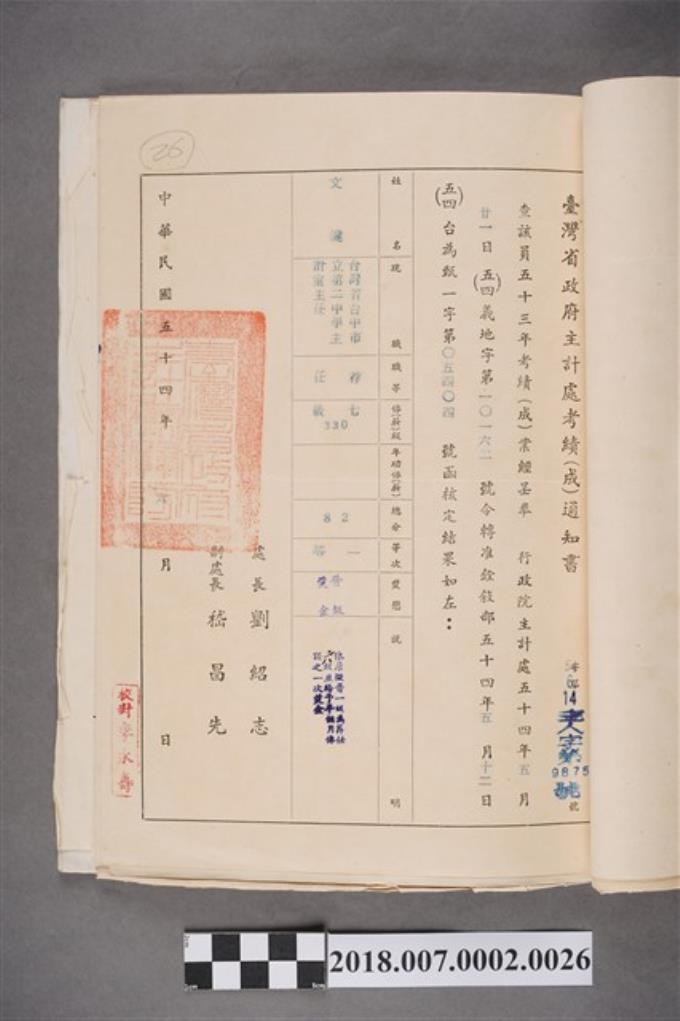 26
臺灣省政府主計處考績(成)通知書
14
主人字第
9875
號
查該員五十三年考績(成)業經呈奉 行政院主計處五十四年五月
廿一日(五四)義地字第一〇一六二號令轉准銓敘部五十四年五月十二日
(五四)台為甄一字第〇五四〇四號函核定結果如左:
姓名 現職 職等 俸(薪)級 年功俸(薪) 總分 等次 獎懲 說明
文
台灣省台中市
立第二中學主
計室主任
荐任
七級
330
82
一等
晉級
獎金
處長 劉紹志
副處長 嵇昌先
中華民國五十四年 月 日
校對
2018.007.0002.0026